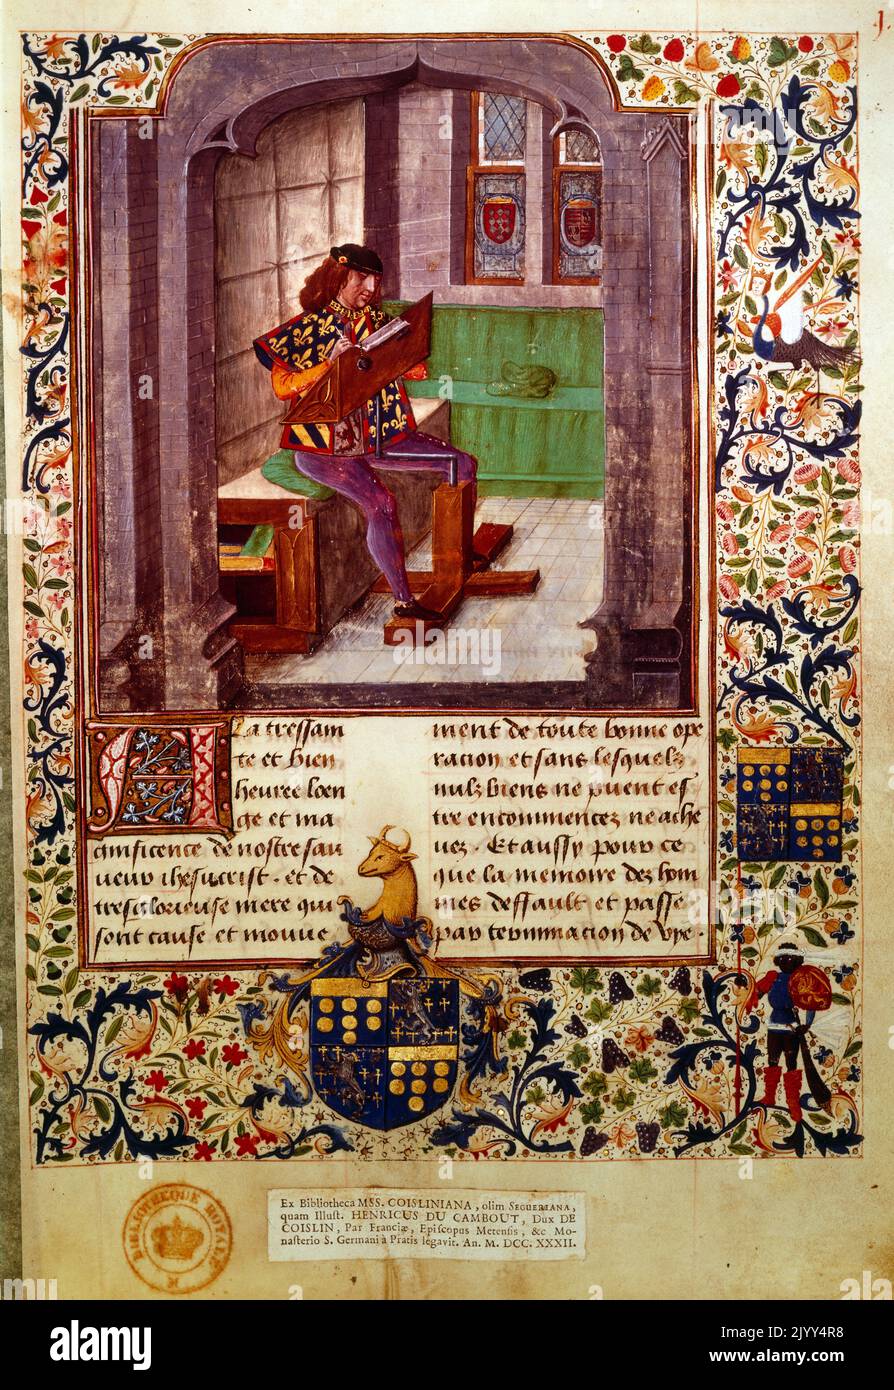 A la tressain
te et bien
heuree loen
ge et ma
gnificence de nostre sau
ueur ihesucrist . et de
tresglorieuse mere qui
sont cause et mouue
ment de toute bonne ope
racion et sans lesquelz
nulz biens ne puent es
tre encommencez ne ache
uez . Et aussy pour ce
que la memoire dez hom
mes deffault et passe
par terminacion de vye .
BIBLIOTHEQUE ROYALE
Ex Bibliotheca MSS. COISLINIANA, olim SEGUERIANA,
quam Illust. HENRICUS DU CAMBOUT, Dux DE
COISLIN, Par Franciæ, Episcopus Metensis, &c Mo-
nasterio S. Germani à Pratis legavit. An. M. DCC. XXXII.
alamy
Image ID: 2JYY4R8
www.alamy.com